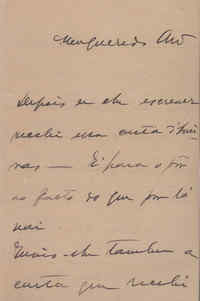 Meu querido Avô
Depois de lhe escrever
recebi essa carta d'
vas — E para o pôr
ao facto do que por lá
vai.
Envio-lhe tambem a
carta que recebi